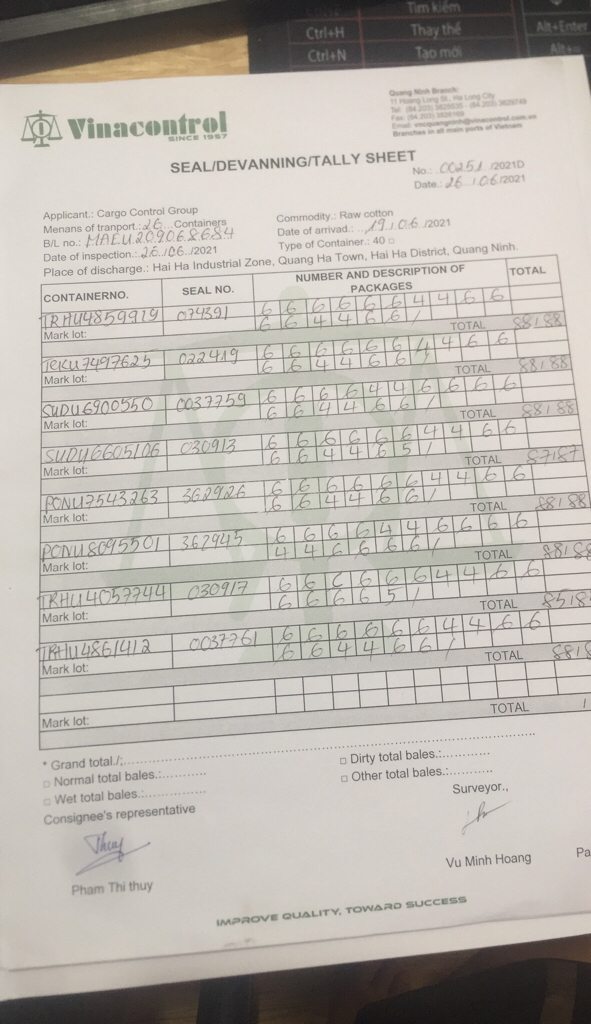 Tìm kiếm
Ctrl+H Thay thế Alt+Enter
Ctrl+N Tạo mới
Vinacontrol
SINCE 1957
Quang Ninh Branch:
11 Hoang Long St., Ha Long City
Branches in all main ports of Vietnam
SEAL/DEVANNING/TALLY SHEET
No.: 00251 /2021D
Date.: 26 / 06/2021
Applicant.: Cargo Control Group
Commodity.: Raw cotton
Menans of tranport.: 26 Containers
Date of arrivad.: 19 / 06 /2021
B/L no.: MAEU209068684
Type of Container.: 40 □
Date of inspection.: 26 /06 /2021
Place of discharge.: Hai Ha Industrial Zone, Quang Ha Town, Hai Ha District, Quang Ninh.
CONTAINERNO. SEAL NO. NUMBER AND DESCRIPTION OF PACKAGES TOTAL
TRHU4859979 074391 6 6 6 6 6 6 4 4 6 6
6 6 4 4 6 6 /
Mark lot: TOTAL 88/88
TCKU7497625 022419 6 6 6 6 6 6 4 4 6 6
6 6 4 4 6 6
Mark lot: TOTAL 88/88
SUDU6900550 0037759 6 6 6 6 4 4 6 6 6 6
6 6 4 4 6 6 /
Mark lot: TOTAL 88/88
SUDU6605106 030913 6 6 6 6 6 6 4 4 6 6
6 6 4 4 6 5 /
Mark lot: TOTAL 87/87
PONU7543263 362926 6 6 6 6 6 6 4 4 6 6
6 6 4 4 6 6 /
Mark lot: TOTAL 88/88
PONU8095501 362945 6 6 6 6 4 4 6 6 6 6
4 4 6 6 6 6 /
Mark lot: TOTAL 88/88
TRHU4057744 030917 6 6 6 6 6 6 4 4 6 6
6 6 6 6 5 /
Mark lot: TOTAL 85/8
TRHU4861412 0037761 6 6 6 6 6 6 4 4 6 6
6 6 4 4 6 6 /
Mark lot: TOTAL 88/8
Mark lot: TOTAL /
* Grand total./:
□ Normal total bales.:........... □ Dirty total bales.:...........
□ Wet total bales.:............... □ Other total bales.:...........
Consignee's representative Surveyor.,
Thuy
Pham Thi thuy Vu Minh Hoang Pa
IMPROVE QUALITY, TOWARD SUCCESS